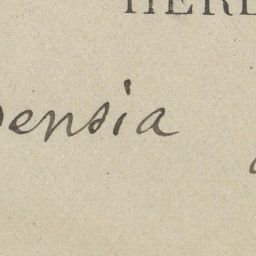 HERB
ensia